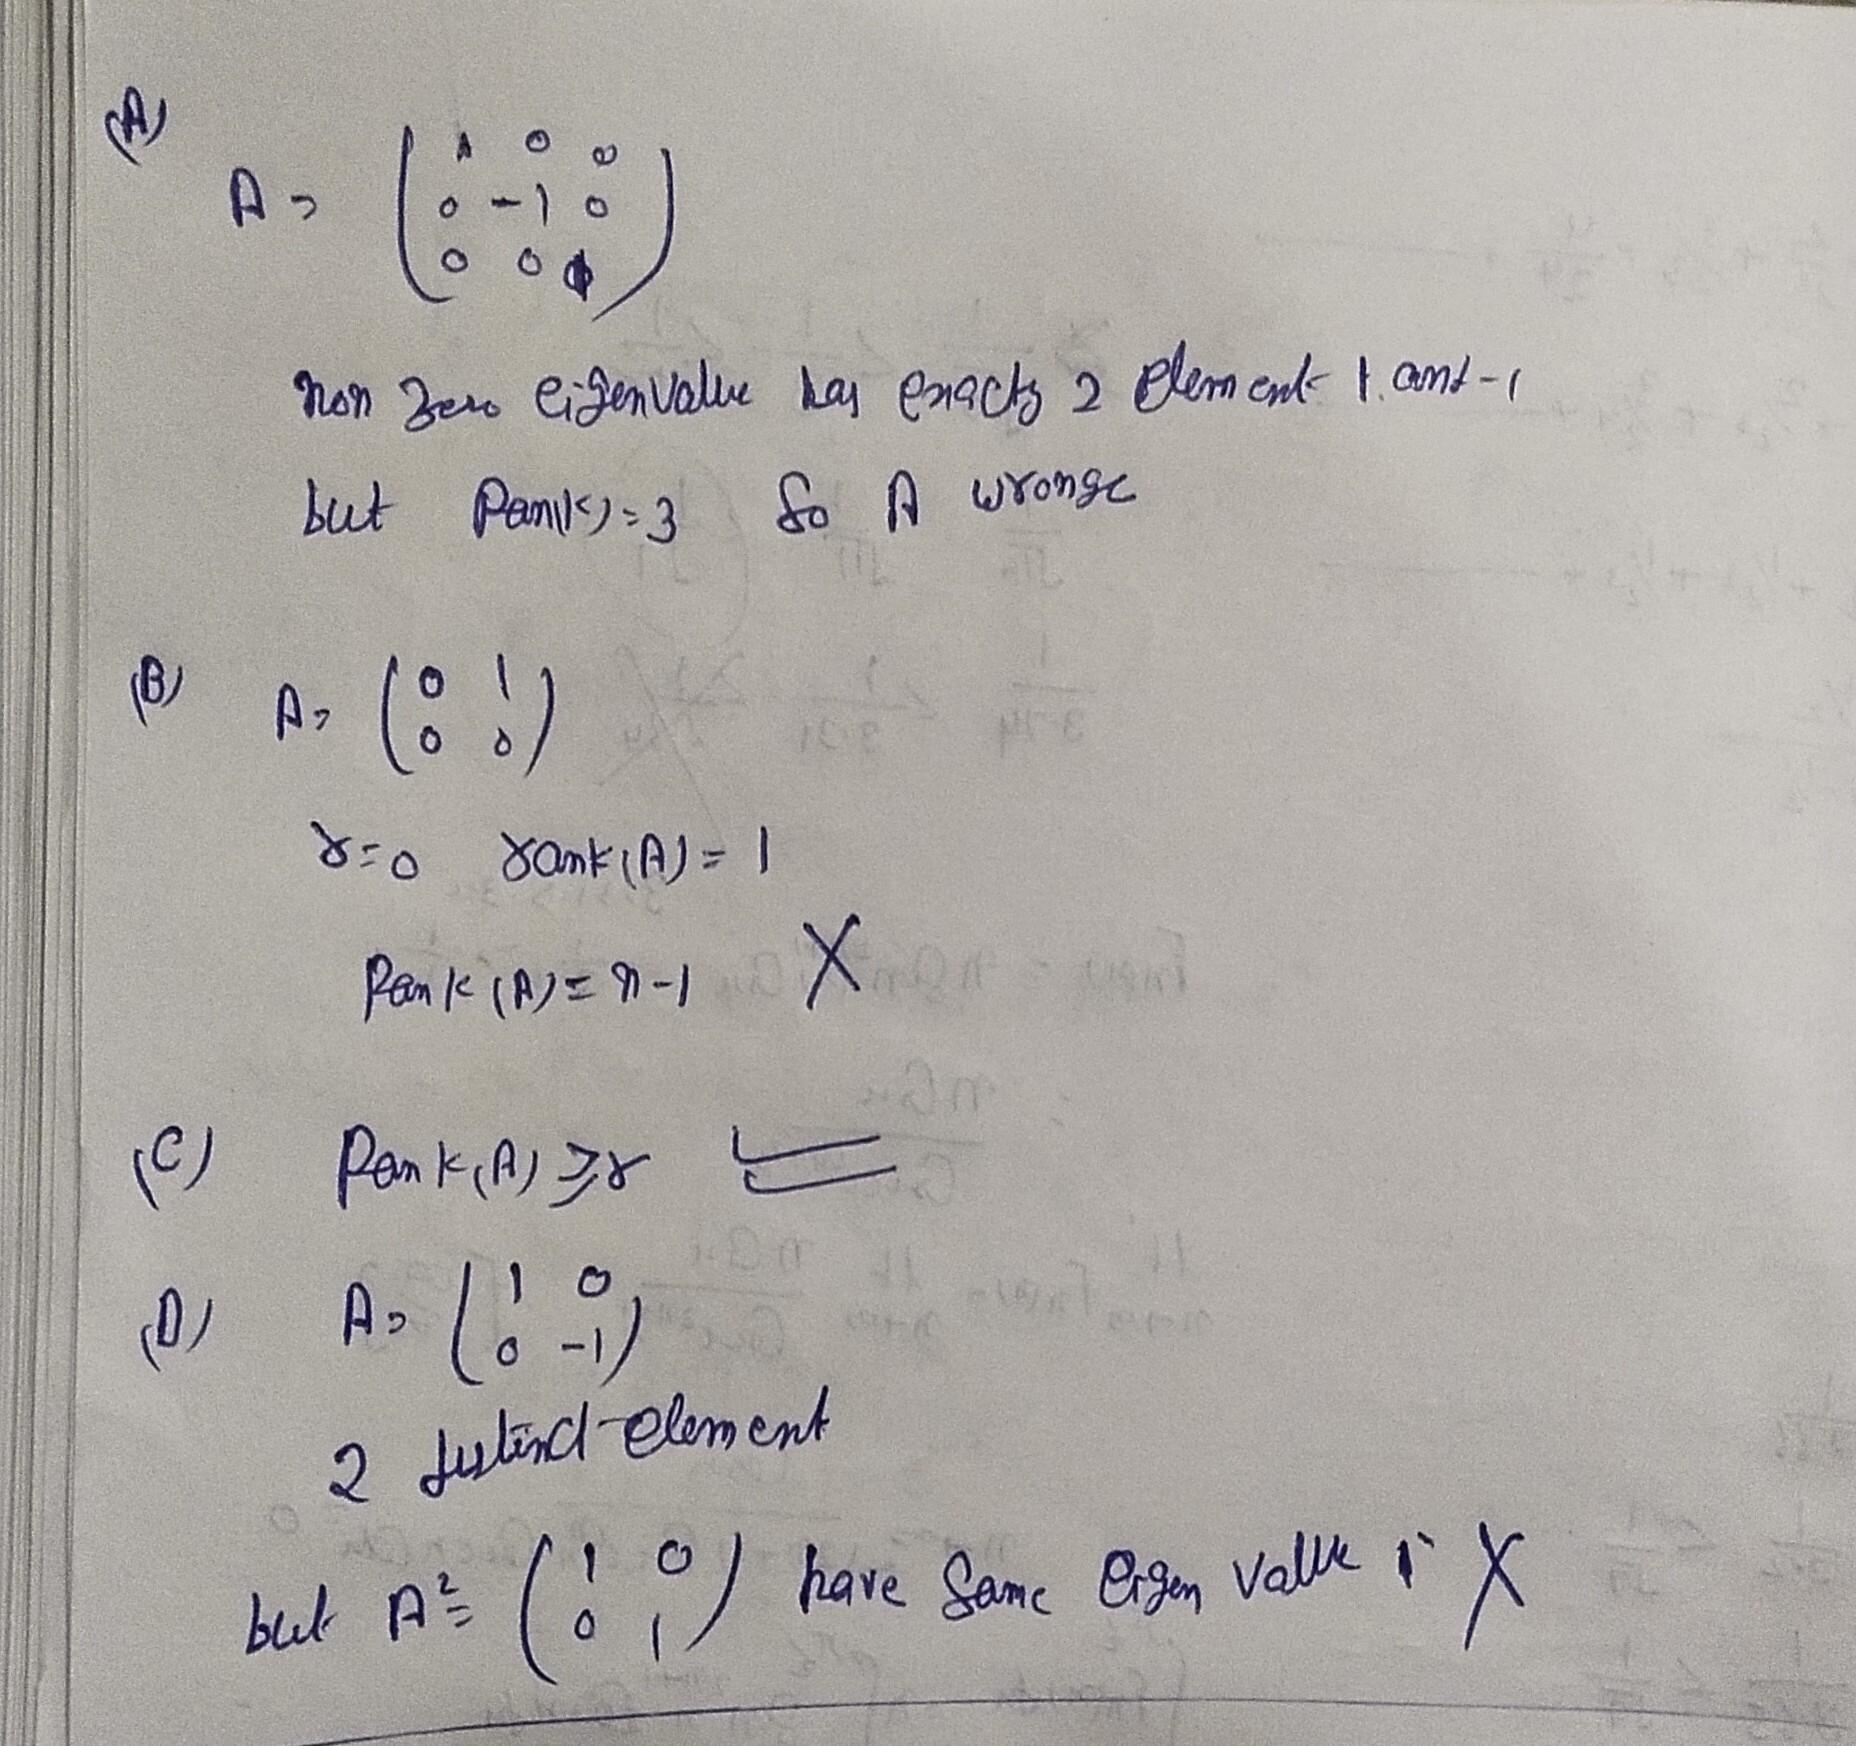 (A)
A = ( 1 0 0
0 -1 0
0 0 1 )
non zero eigenvalue has exacts 2 element 1 and -1
but Rank = 3 So A wronge
(B) A = ( 0 1
0 0 )
r=0 rank(A) = 1
Rank (A) = n-1 X
(C) Rank(A) ≥ r
(D) A = ( 1 0
0 -1 )
2 distinct element
but A² = ( 1 0
0 1 ) have same Eigen value 1 X